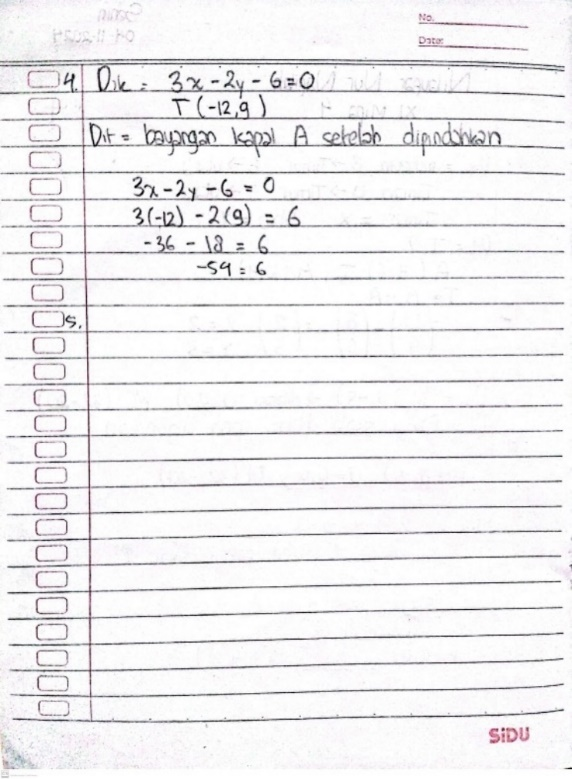 No.
Date:
4. Dik = 3x - 2y - 6 = 0
T (-12,9)
Dit = bayangan kapal A setelah dipindahkan
3x - 2y - 6 = 0
3(-12) - 2(9) = 6
-36 - 18 = 6
-54 = 6
5.
SiDU